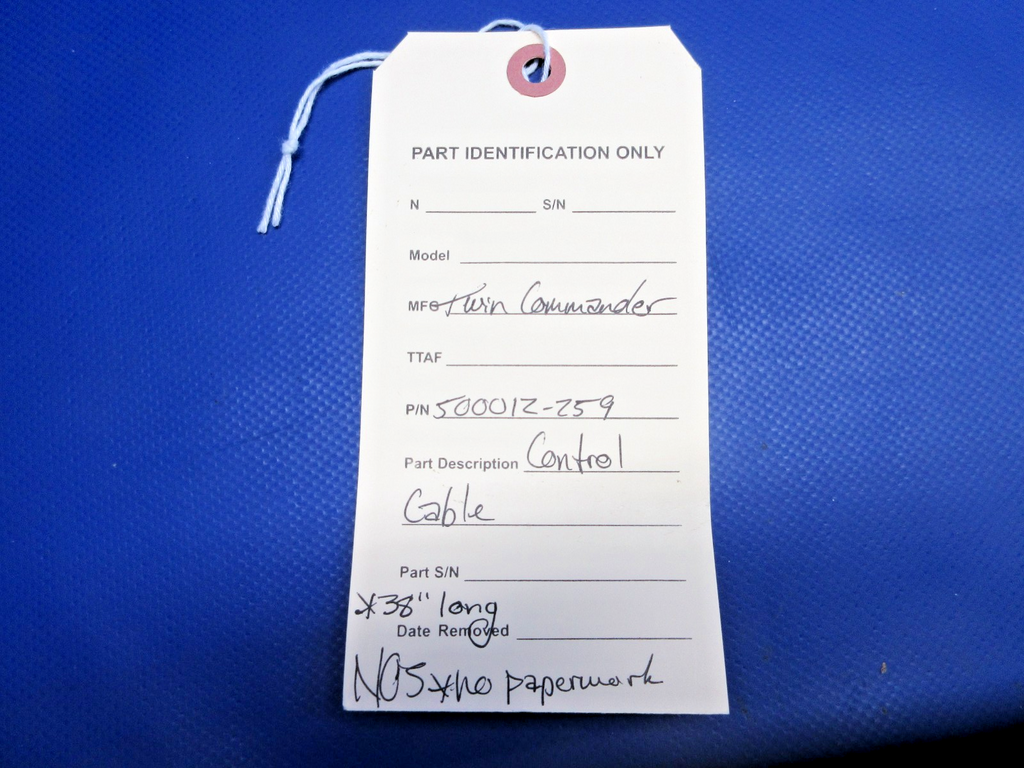 PART IDENTIFICATION ONLY
N S/N
Model
MFG Twin Commander
TTAF
P/N 500012-259
Part Description Control
Cable
Part S/N
*38" long
Date Removed
NOS *no paperwork